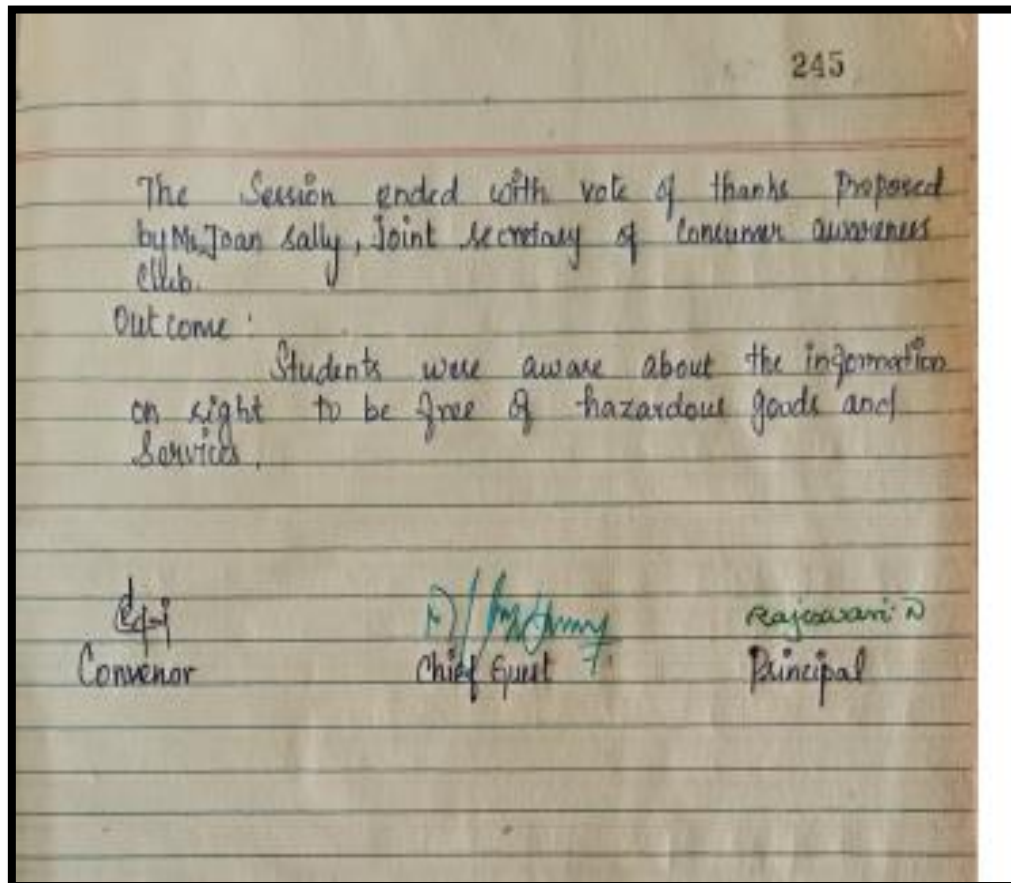 245
The Session ended with vote of thanks Proposed
by Ms. Joan Sally, Joint secretary of Consumer awareness
Club.
Outcome :
Students were aware about the information
on right to be free of hazardous goods and
Services.
Rajeswari D
Convenor Chief Guest Principal